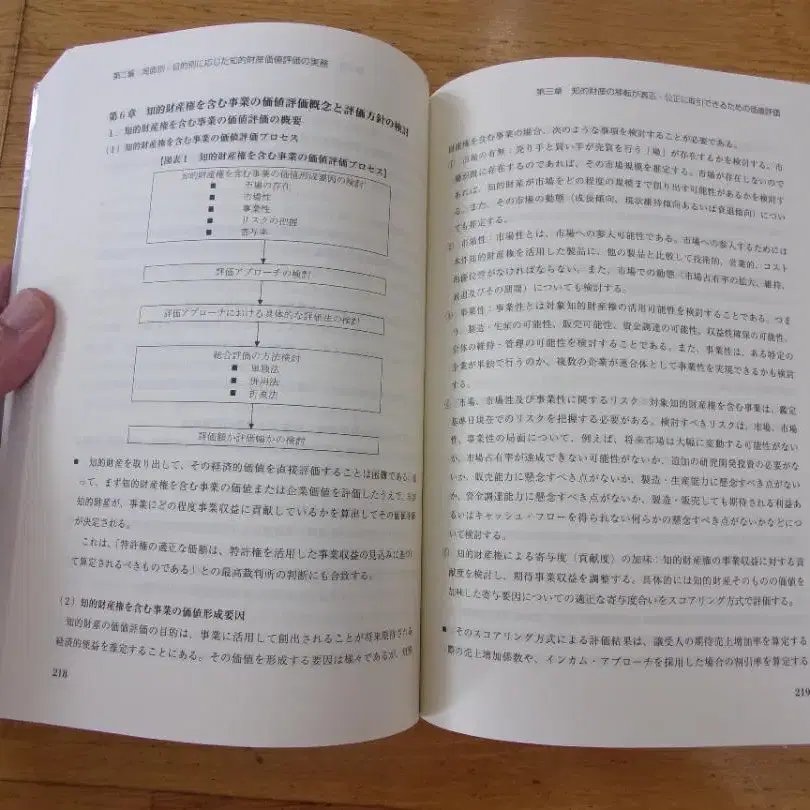 第二章 局面別・目的別に応じた知的財産価値評価の実務
第6章 知的財産権を含む事業の価値評価概念と評価方針の検討
1. 知的財産権を含む事業の価値評価の概要
(1) 知的財産権を含む事業の価値評価プロセス
【図表1 知的財産権を含む事業の価値評価プロセス】
知的財産権を含む事業の価値形成要因の検討
■ 市場の存在
■ 市場性
■ 事業性
■ リスクの把握
■ 寄与率
評価アプローチの検討
評価アプローチにおける具体的な評価法の検討
総合評価の方法検討
■ 単独法
■ 併用法
■ 折衷法
評価額か評価幅かの検討
■ 知的財産を取り出して、その経済的価値を直接評価することは困難である。従
って、まず知的財産権を含む事業の価値または企業価値を評価したうえで、
知的財産が、事業にどの程度事業収益に貢献しているかを算出してその価値
が決定される。
これは、「特許権の適正な価額は、特許権を活用した事業収益の見込みに基づい
て算定されるべきものである」との最高裁判所の判断にも合致する。
(2) 知的財産権を含む事業の価値形成要因
知的財産の価値評価の目的は、事業に活用して創出されることが将来期待される
経済的便益を推定することにある。その価値を形成する要因は様々であるが、知的
218
第三章 知的財産の移転が適正・公正に取引できるための価値評価
財産権を含む事業の場合、次のような事項を検討することが必要である。
① 市場の有無:売り手と買い手が売買を行う「場」が存在するかを検討する。市
場が既に存在するのであれば、その市場規模を推定する。市場が存在しないので
あれば、知的財産が市場をどの程度の規模まで創り出す可能性があるかを検討す
る。また、その市場の動態（成長傾向、現状維持傾向あるいは衰退傾向）につい
ても推定する。
② 市場性:市場性とは、市場への参入可能性である。市場への参入するためには
本件知的財産権を活用した製品に、他の製品と比較して技術的、営業的、コスト
的優位性がなければならない。また、市場での動態（市場占有率の拡大、維持、
衰退及びその期間）についても検討する。
③ 事業性:事業性とは対象知的財産権の活用可能性を検討することである。つま
り、製造・生産の可能性、販売可能性、資金調達の可能性、収益性確保の可能性、
全体の維持・管理の可能性を検討することである。また、事業性は、ある特定の
企業が単独で行うのか、複数の企業が連合体として事業性を実現できるかも検討
する。
④ 市場、市場性及び事業性に関するリスク:対象知的財産権を含む事業は、鑑定
基準日現在でのリスクを把握する必要がある。検討すべきリスクは、市場、市場
性、事業性の局面について、例えば、将来市場は大幅に変動する可能性がない
か、市場占有率が達成できない可能性がないか、追加の研究開発投資の必要がな
いか、販売能力に懸念すべき点がないか、製造・生産能力に懸念すべき点がない
か、資金調達能力に懸念すべき点がないか、製造・販売しても期待される利益あ
るいはキャッシュ・フローを得られない何らかの懸念すべき点がないかなどにつ
いて検討する。
⑤ 知的財産権による寄与度（貢献度）の加味:知的財産権の事業収益に対する貢
献度を検討し、期待事業収益を調整する。具体的には知的財産そのものの価値を
加味した寄与要因についての適正な寄与度合いをスコアリング方式で評価する。
■ そのスコアリング方式による評価結果は、譲受人の期待売上増加率を算定する
際の売上増加係数や、インカム・アプローチを採用した場合の割引率を算定する
219